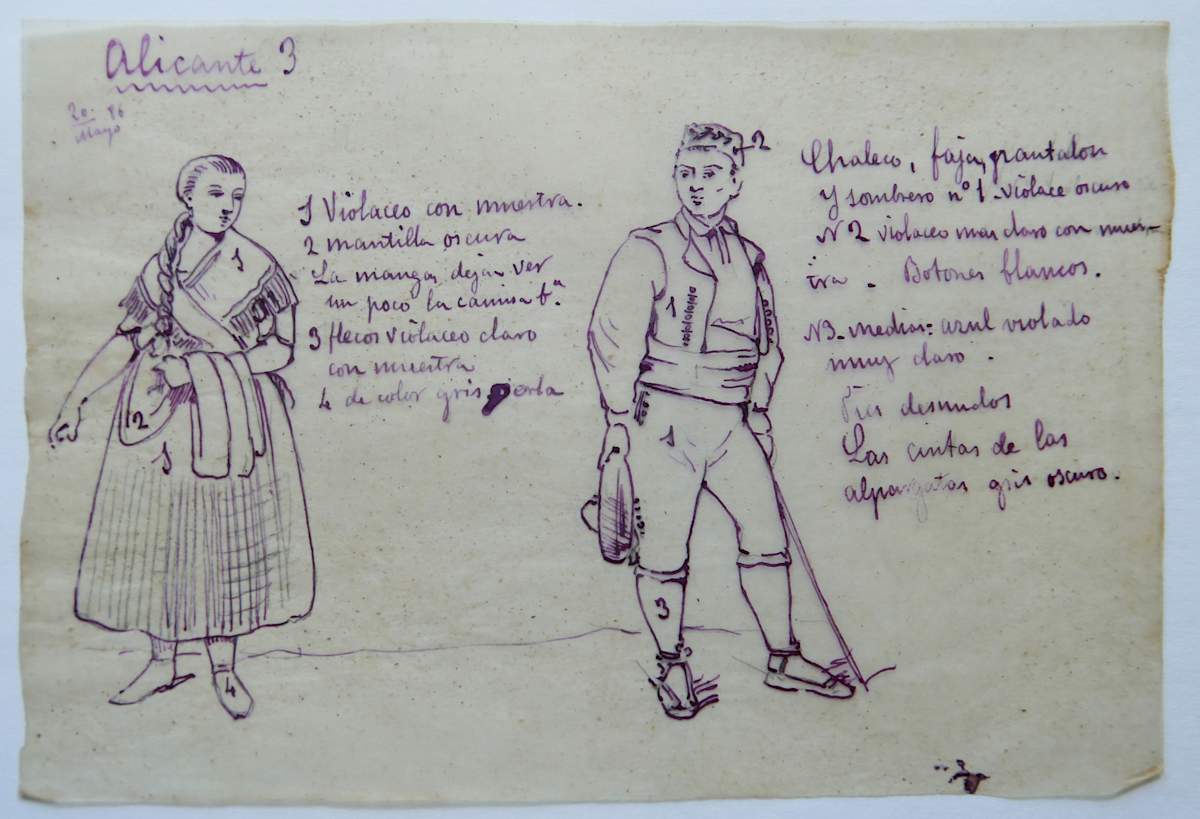 Alicante 3
20. 86
Mayo
1 Violaceo con muestra.
2 mantilla oscura
La manga, dejan ver
un poco la camisa bᵃ.
3 flecos violaceo claro
con muestra
4 de color gris perla
Chaleco, faja, pantalon
y sombrero nº 1 - violace oscuro
N 2 violaceo mas claro con mues-
tra - Botones blancos.
N3 - medias: azul violado
muy claro.
Pies desnudos
Las cintas de las
alpargatas gris oscuro.
1
2
1
4
2
1
1
3